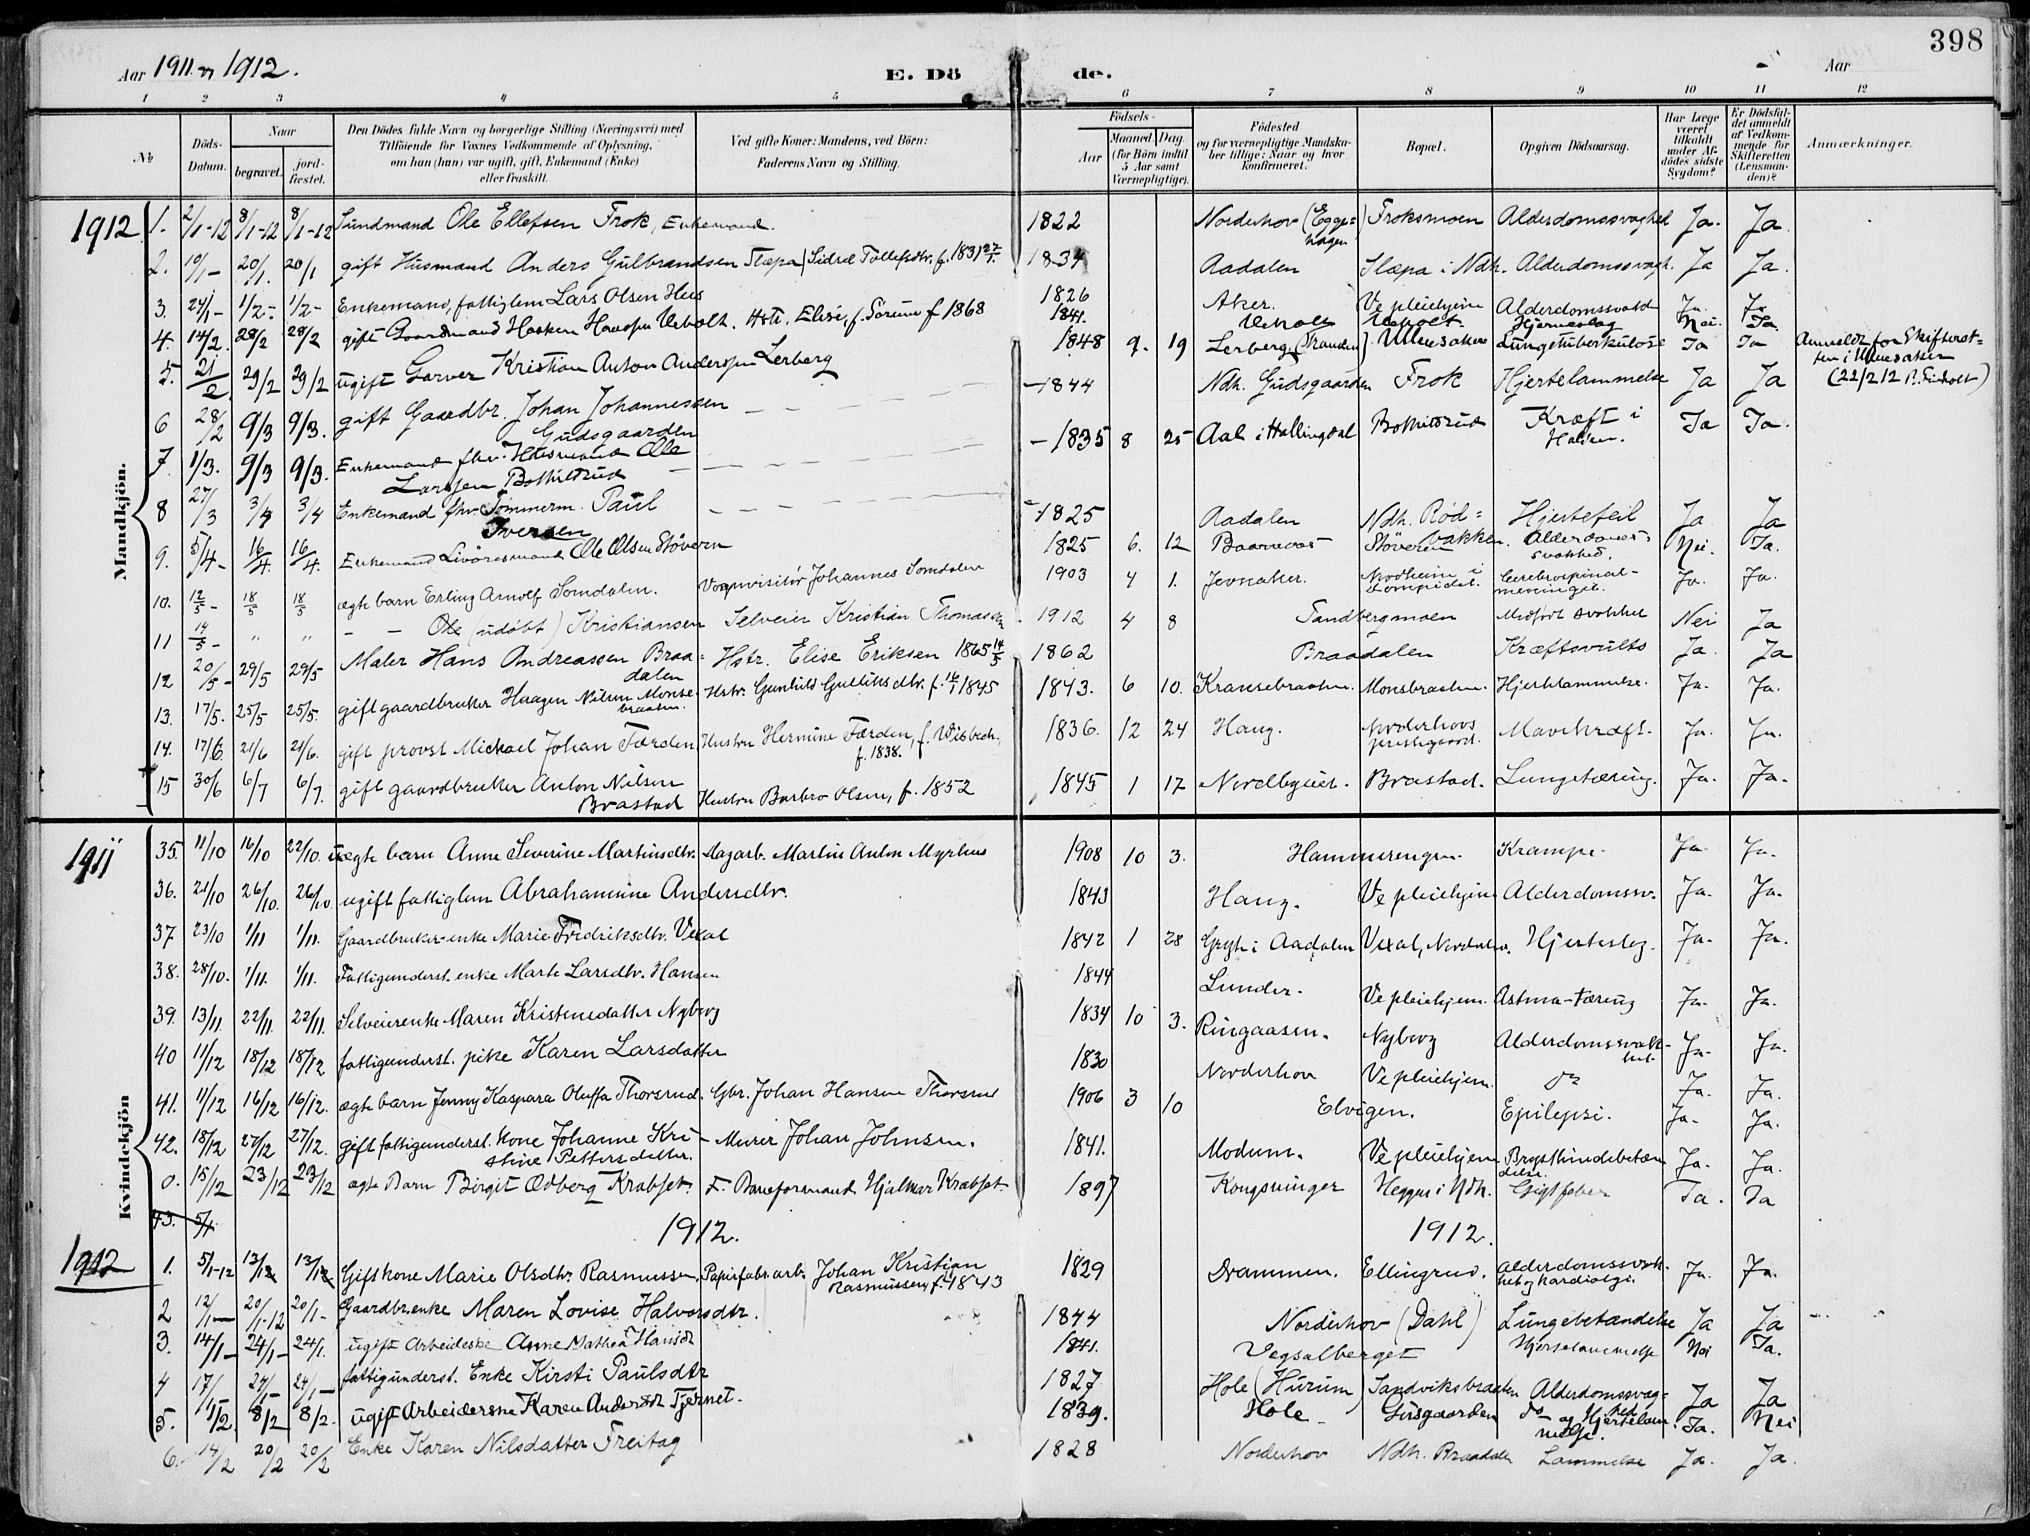 398
Aar 1911 og 1912.
E. Döde.
Aar
1 2 3 4 5 6 7 8 9 10 11 12
No
Döds-Datum.
Naar
begravet.
jord-fæstet.
Den Dödes fulde Navn og borgerlige Stilling (Næringsvei) med
Tilföiende for Voxnes Vedkommende af Oplysning,
om han (hun) var ugift, gift, Enkemand (Enke)
eller fraskilt.
Ved gifte Koner: Mandens, ved Börn:
Faderens Navn og Stilling.
Födsels-
Aar
Maaned
Dag.
(for Börn indtil
5 Aar samt
Værnepligtige).
Födested
og for værnepligtige Mandska-
ber tillige: Naar og hvor
konfirmeret.
Bopæl.
Opgiven Dödsaarsag.
Har Læge
været
tilkaldt
under Af-
dödes sidste
Sygdom?
Er Dödsfal-
det anmeldt
af Vedkom-
mende for
Skifteretten
(Lensman-
den)?
Anmærkninger.
Mandkjön.
1912 1. 2/1-12 8/1-12 8/1-12 Sundmand Ole Ellefsen Frok, Enkemand. 1822 Norderhov (Egge=hagen) Froksmoen Alderdomssvaghed Ja. Ja
2. 10/1- 20/1. 20/1 gift Husmand Anders Gulbrandsen Slæpa (Sidsel Tollefsdtr. f. 1831 27/1. 1834 Aadalen Slæpa i Ndh. Alderdomssvagh. Ja Ja.
3. 24/1- 1/2- 1/2- Enkemand, fattiglem Lars Olsen Hus 1826 Aker. Ve pleiehjem Alderdomssvakh Ja. Ja
4. 14/2. 28/2 28/2 gift Gaardmand Haaken Veholt. Hstr. Elise, f. Sörum f 1868 1841. Veholt Veholt. Hjerneslag Nei. Ja
5. 21/2 29/2 29/2 ugift Garver Kristian Anton Anderssen Lerberg 1848 9. 19 Lerberg, (Standen) Ullensaker Lungetuberkulose Ja Ja Anmeldt for Skifteret=
ten i Ullensaker
(22/2 12
6 28/2 9/3 9/3. gift Gaardbr. Johan Johannessen
Gudsgaarden - 1844 Ndh. Gudsgaarden Frok Hjertelammelse Ja Ja
7. 1/3. 9/3 9/3. Enkemand fhv. Husmand Ole
Larssen Bothildrud - 1835 8 25 Aal i Hallingdal Bothildrud Kræft i
Halsen. Ja Ja.
8 27/3 3/4 3/4 Enkemand fhv. Tömmerm. Paul
Iversen - 1825 Aadalen Ndh. Rød=bakken. Hjertefeil Ja Ja
9. 5/4- 16/4. 16/4. Enkemand Livöresmand Ole Olsen Stövern 1825 6. 12 Stöveren Alderdoms-
svakhed. Nei. Ja.
10. 12/5- 18/5 18/5 ægte barn Erling Arnolf Somdalen. Vognvisitör Johannes Somdalen 1903 4 1. Jevnaker. Nordheim i Cerebrospinal-
meningit. Ja. Ja.
11 14/5- " " - - Ole (udöbt) Kristiansen Selveier Kristian Thomassen 1912 4 8 Sandbergmoen Medfödt svakhet Nei Ja
12 20/5- 29/5 29/5 Maler Hans Andreassen Braa=
dalen Hstr. Elise Eriksen 1865 14/5 1862 Braadalen Kræftsvulst Ja. Ja
13. 17/5. 25/5 25/5. gift gaardbruker Haagen Nilsen Monse-
braaten. Hstr. Gunhild Gulliksdtr. f. 14/1 1845 1843. 6 10. Monsbraaten. Hjertelammelse. Ja. Ja.
14. 17/6. 21/6 21/6. gift provst Mickael Johan Færden Hustru Hermine Færden, f. Wisbech,
f. 1838. 1836. 12 24 Haug. Norderhovs
prestegaard. Mavekræft. Ja. Ja.
15 30/6 6/7 6/7. gift gaardbruker Anton Nilsen
Brastad Hustru Barbro Olsen, f. 1852 1845 1 17 Nordbyeiet. Brastad. Lungetæring. Ja. Ja.
Kvindekjön
1911 35. 11/10 16/10 22/10. uægte barn Anne Severine Martinsdtr. Dagarb. Martin Anton Myrhus 1908 10 3. Hammerengen. Krampe. Ja Ja.
36. 21/10 26/10. 26/10. ugift fattiglem Abrahamine Andersdtr. 1843 Haug. Ve pleiehjem Alderdomssv. Ja. Ja.
37 23/10 1/11 1/11. Gaardbruker-enke Marie Fredriksdtr. Vexal 1842 1 28 Gryte i Aadalen Vexal, Norderhov. Hjerteslag. Ja. Ja.
38. 28/10. 1/11. 1/11. Fattigunderst. enke Marte Larsdtr. Hansen 1844 Lunder. Ve pleiehjem. Astma-tæring Ja. Ja.
39. 13/11. 22/11. 22/11. Selveierenke Maren Kristensdatter Nyborg 1834 10 3. Ringaasen. Nyborg Alderdomssvak-
het Ja. Ja.
40 11/12 18/12 18/12 fattigunderst. pike Karen Larsdatter 1830 Norderhov Ve pleiehjem. do Ja. Ja.
41. 11/12 16/12 16/12. ægte barn Jenny Kaspara Oluffa Thorsrud. Gbr. Johan Hansen Thorsrud 1906 3 10 Elvigen. Epilepsi. Ja. Ja.
42. 18/12 27/12 27/12. gift fattigunderst. kone Johanne Kri-
stine Pettersdatter. Murer Johan Johnsen. 1841. Modum. Ve pleiehjem Brysthindebetæn
delse. Ja. Ja.
0. 15/12 23/12 23/12 ægte Barn Birgit Ødberg Krabset. F. Baneformand Hjalmar Krabset 1897 Kongsvinger Heggen i Ndh. Gigtfeber Ja. Ja
43. 5/1
1912. 1912.
1912 1. 5/1-12 13/12 13/12 Gift kone Marie Olsdtr. Rasmussen, Papirfabr. arb. Johan Kristian
Rasmussen, f. 1843 1829 Drammen. Ellingrud. Alderdomssvak-
het og kardialgi. Ja. Ja.
2 12/1- 20/1-12 20/1- Gaardbr. enke Maren Lovise Halvorsdtr. 1844 Norderhov (Dahl) Lungebetændelse Ja Ja
3. 14/1- 24/1- 24/1. ugift Arbeideske Anne Mathea Hansdtr 1841. Vegsalberget Hjertelammelse Nei Ja.
4 17/1- 24/1- 24/1- fattigunderst. Enke Kirsti Paulsdtr 1827 Hole (Hurum) Sandviksbraaten Alderdomssvag-
hed Ja Ja
5. 1/2 8/2- 8/2- ugift Arbeiderske Karen Andersdtr Tjernet. 1839. Hole - Gusgaarden do og Hjertelam
melse. Ja. Nei
6. 14/2 20/2 20/2 Enke Karen Nilsdatter Freitag 1828 Norderhov Ndh. Braadalen Lammelse Ja. Ja.